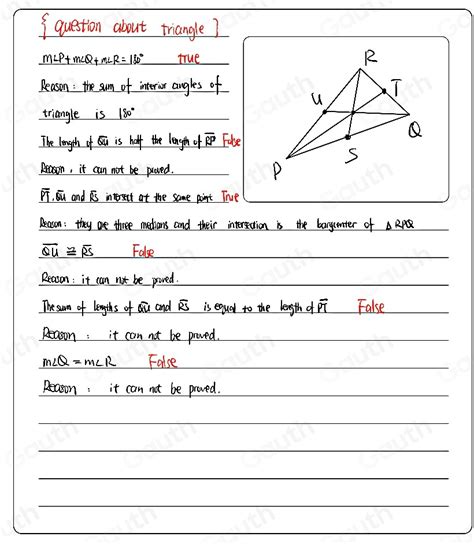 { question about triangle ]
m∠P + m∠Q + m∠R = 180° true
Reason : the sum of interior angles of
triangle is 180°
The length of QU is half the length of RP False
Reason , it can not be proved.
PT, QU and RS intersect at the same point True
Reason : they are three medians and their intersection is the barycenter of △RPQ
QU ≅ RS False
Reason : it can not be proved.
The sum of lengths of QU and RS is equal to the length of PT False
Reason : it can not be proved.
m∠Q = m∠R False
Reason : it can not be proved.
R
U
T
Q
S
P